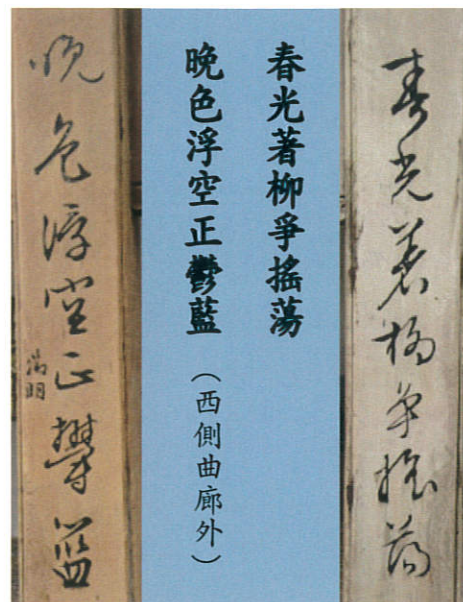 春光著柳爭搖蕩
春光著柳爭搖蕩
晚色浮空正鬱藍（西側曲廊外）
晚色浮空正鬱藍